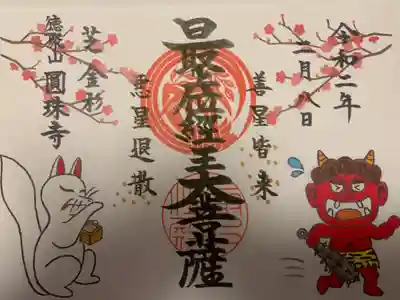 令和二年
二月八日
善星皆来
最位經王大菩薩
悪星退散
芝金杉
德聚山圓珠寺